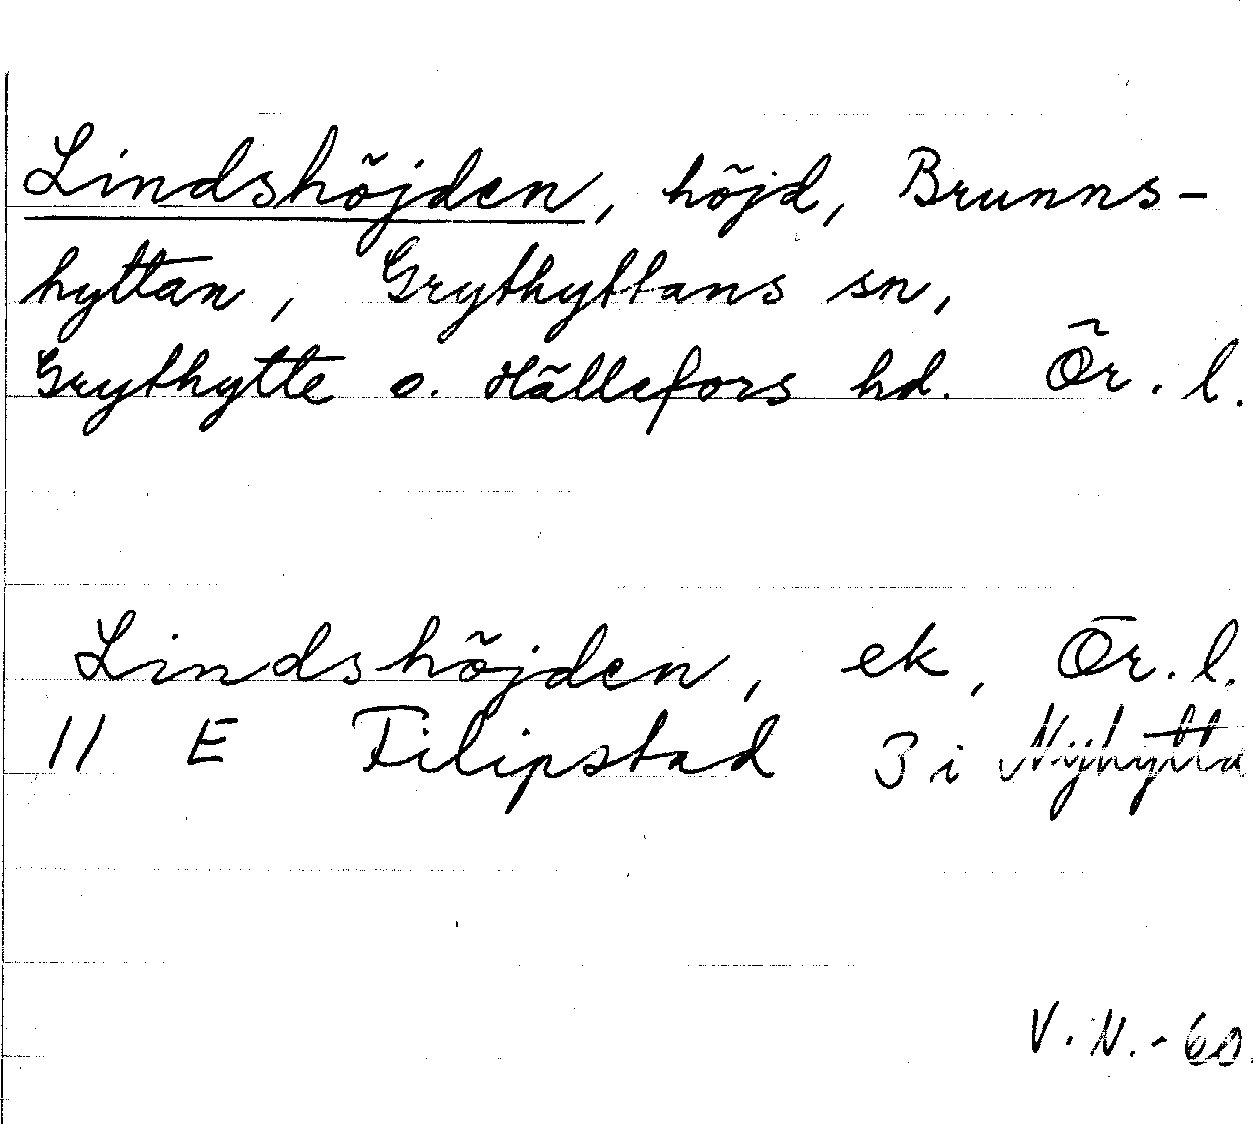 Lindshöjden, höjd, Brunns-
hyttan, Grythyttans sn,
Grythytte o. Hällefors hd. Ör. l.
Lindshöjden, ek, Ör. l.
11 E Filipstad 3 i Nyhytta
V. N. - 60.